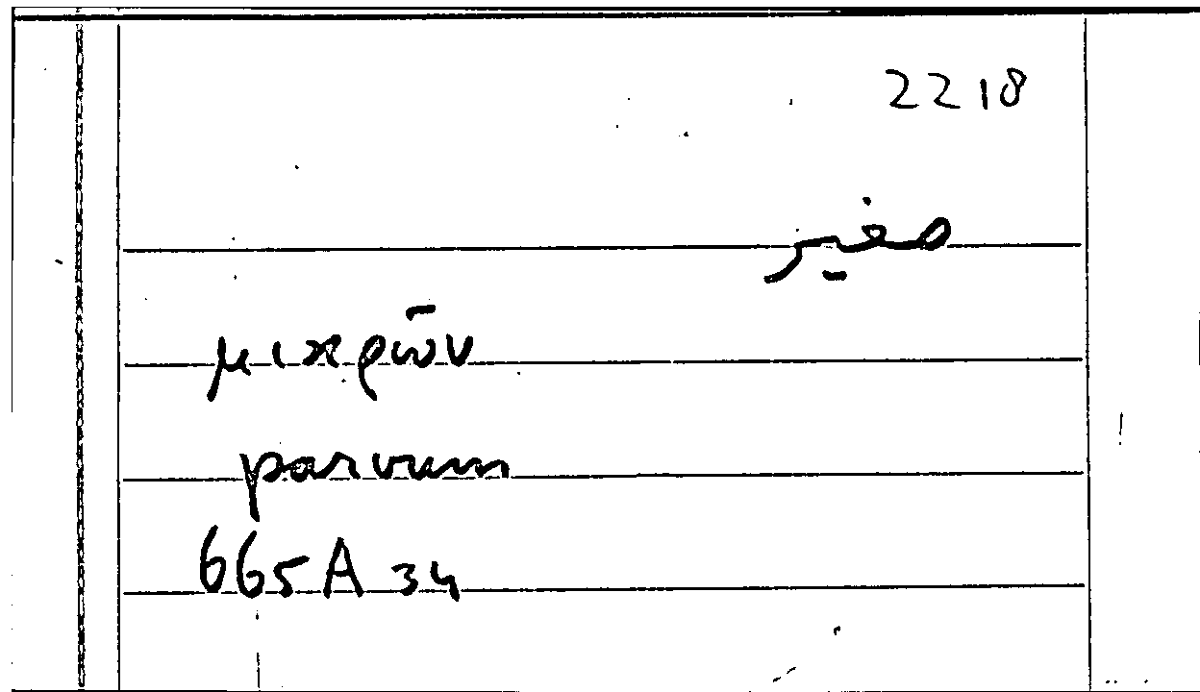 2218
صغير
μικρῶν
parvum
665A34